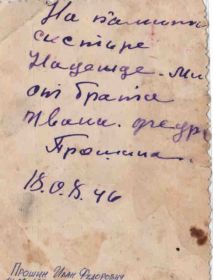 На память
сестыре
Надежде. Ми
от брата
Ивана. Федр
Прошина.
18.0.8.46
Прошин Иван Федорович